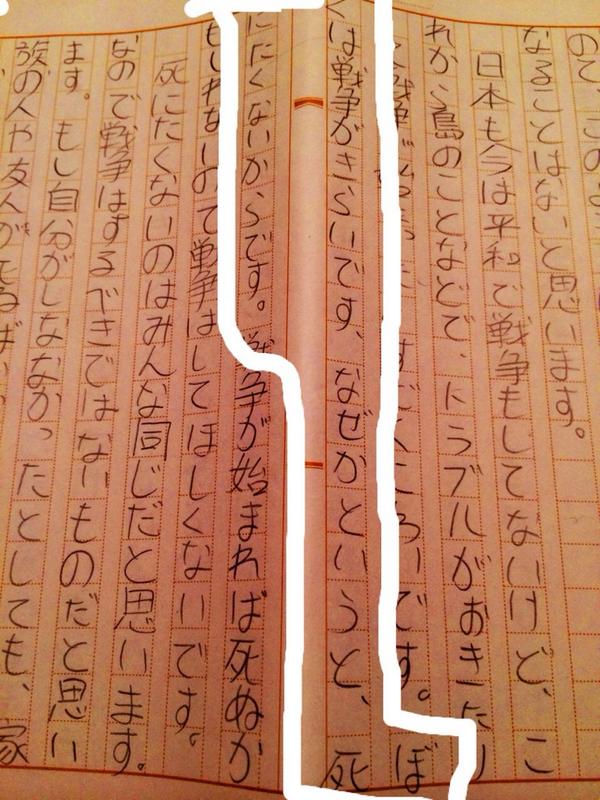 ので、この
なることはないと思います。
日本も今は平和で戦争もしてないけど、こ
れから島のことなどで、トラブルがおきたり
戦争が です。ぼ
くは戦争がきらいです、なぜかというと、死
にたくないからです。戦争が始まれば死ぬか
もしれないので戦争はしてほしくないです。
死にたくないのはみんな同じだと思います。
なので戦争はするべきではないものだと思い
ます。もし自分がしななかったとしても、家
族の人や友人が